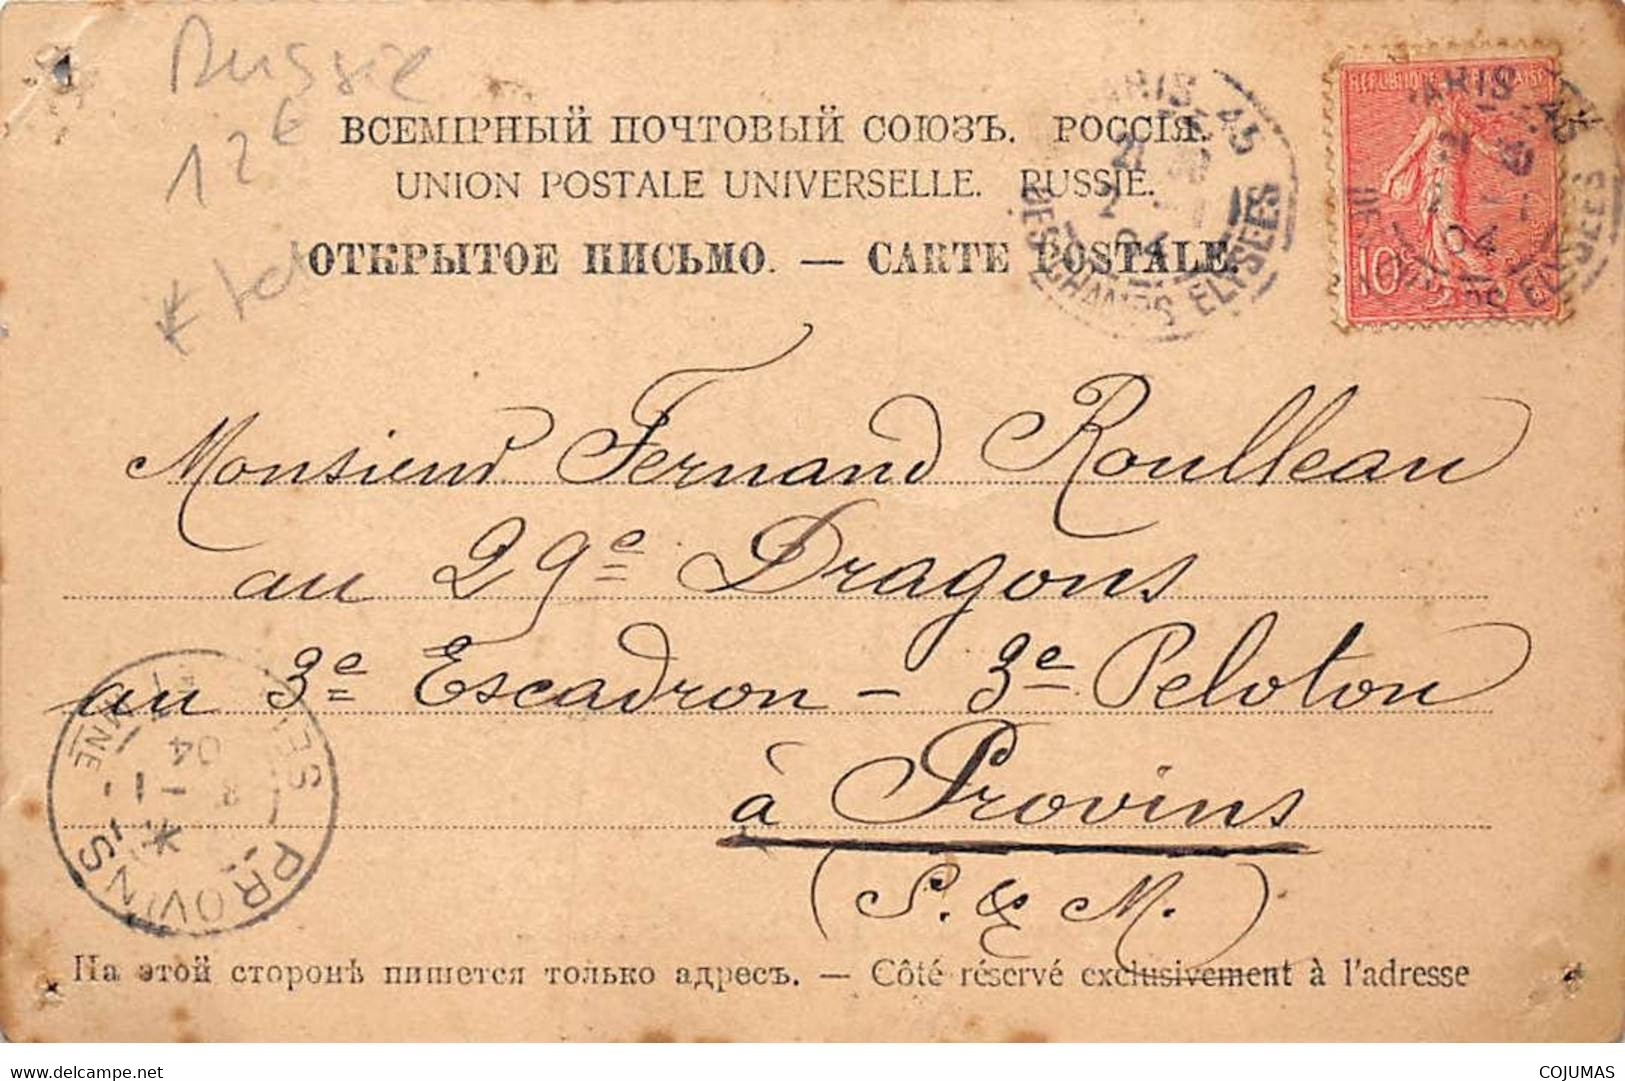 Russie
12€
ВСЕМІРНЫЙ ПОЧТОВЫЙ СОЮЗЪ. РОССІЯ.
UNION POSTALE UNIVERSELLE. RUSSIE.
ОТКРЫТОЕ ПИСЬМО. — CARTE POSTALE.
PARIS 45
DES CHAMPS ELYSEES
REPUBLIQUE FRANÇAISE
10c
04
Monsieur Fernand Roulleau
au 29e Dragons
au 3e Escadron - 3e Peloton
à Provins
(S. & M.)
PROVINS
04
На этой сторонѣ пишется только адресъ. — Côté réservé exclusivement à l'adresse
COJUMAS